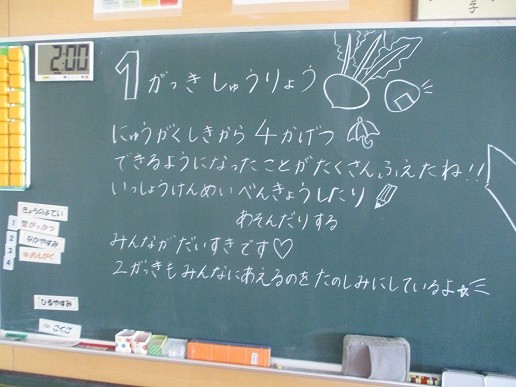 2:00
1がっき しゅうりょう
にゅうがくしきから 4かげつ
できるようになったことがたくさんふえたね!!
いっしょうけんめい べんきょうしたり
あそんだりする
みんながだいすきです♡
2がっきもみんなにあえるのをたのしみにしているよ☆
きょうのよてい
1
2
3
4
なかやすみ
おんがく
ひるやすみ
こくご
子